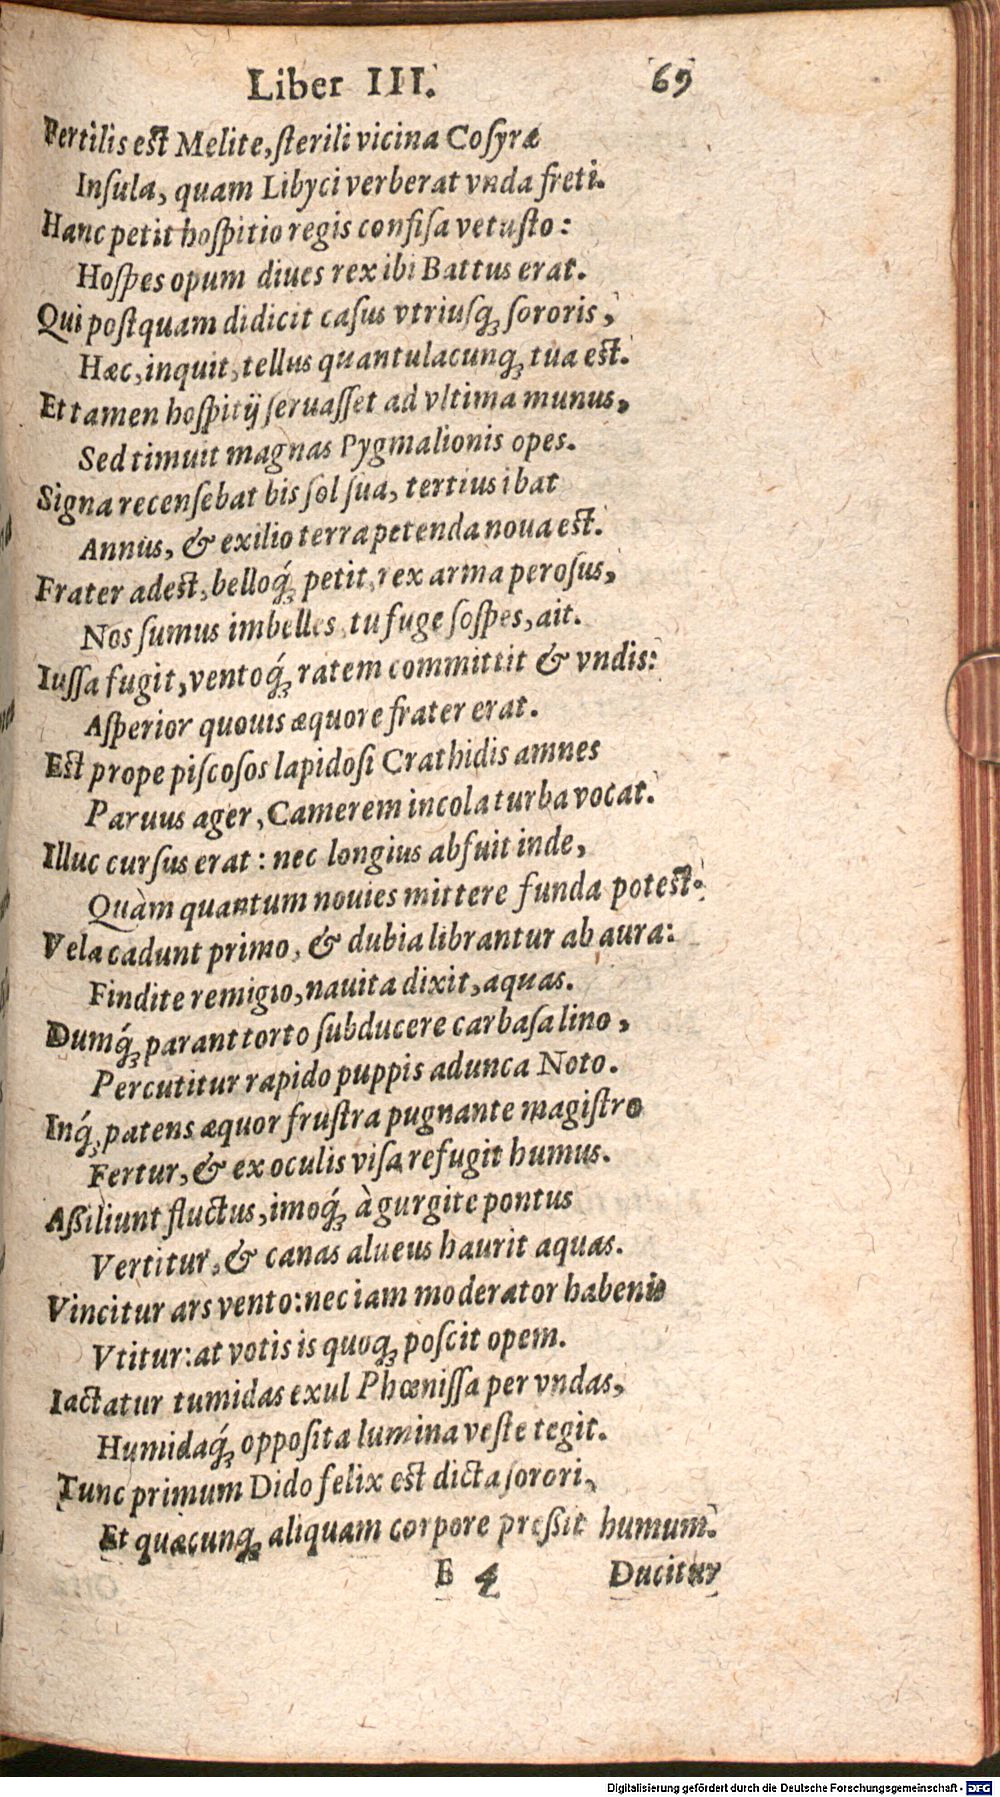 Liber III. 69
Fertilis est Melite, sterili vicina Cosyræ
Insula, quam Libyci verberat vnda freti.
Hanc petit hospitio regis confisa vetusto:
Hospes opum diues rex ibi Battus erat.
Qui postquam didicit casus vtriusq́ꝫ sororis,
Hæc, inquit, tellus quantulacunqꝫ tua est.
Et tamen hospitij seruasset ad vltima munus,
Sed timuit magnas Pygmalionis opes.
Signa recensebat bis sol sua, tertius ibat
Annus, & exilio terra petenda noua est.
Frater adest, belloq́ꝫ petit, rex arma perosus,
Nos sumus imbelles, tu fuge sospes, ait.
Iussa fugit, ventoq́ꝫ ratem committit & vndis:
Asperior quouis æquore frater erat.
Est prope piscosos lapidosi Crathidis amnes
Paruus ager, Camerem incola turba vocat.
Illuc cursus erat: nec longius abfuit inde,
Quàm quantum nouies mittere funda potest.
Vela cadunt primo, & dubia librantur ab aura:
Findite remigio, nauita dixit, aquas.
Dumq́ꝫ parant torto subducere carbasa lino,
Percutitur rapido puppis adunca Noto.
Inq́ꝫ patens æquor frustra pugnante magistro
Fertur, & ex oculis visa refugit humus.
Aßiliunt fluctus, imoq́ꝫ à gurgite pontus
Vertitur, & canas alueus haurit aquas.
Vincitur ars vento: nec iam moderator habenis
Vtitur: at votis is quoqꝫ poscit opem.
Iactatur tumidas exul Phœnissa per vndas,
Humidaq́ꝫ opposita lumina veste tegit.
Tunc primum Dido felix est dicta sorori,
Et quæcunqꝫ aliquam corpore preßit humum.
E 4 Ducitur
Digitalisierung gefördert durch die Deutsche Forschungsgemeinschaft - DFG